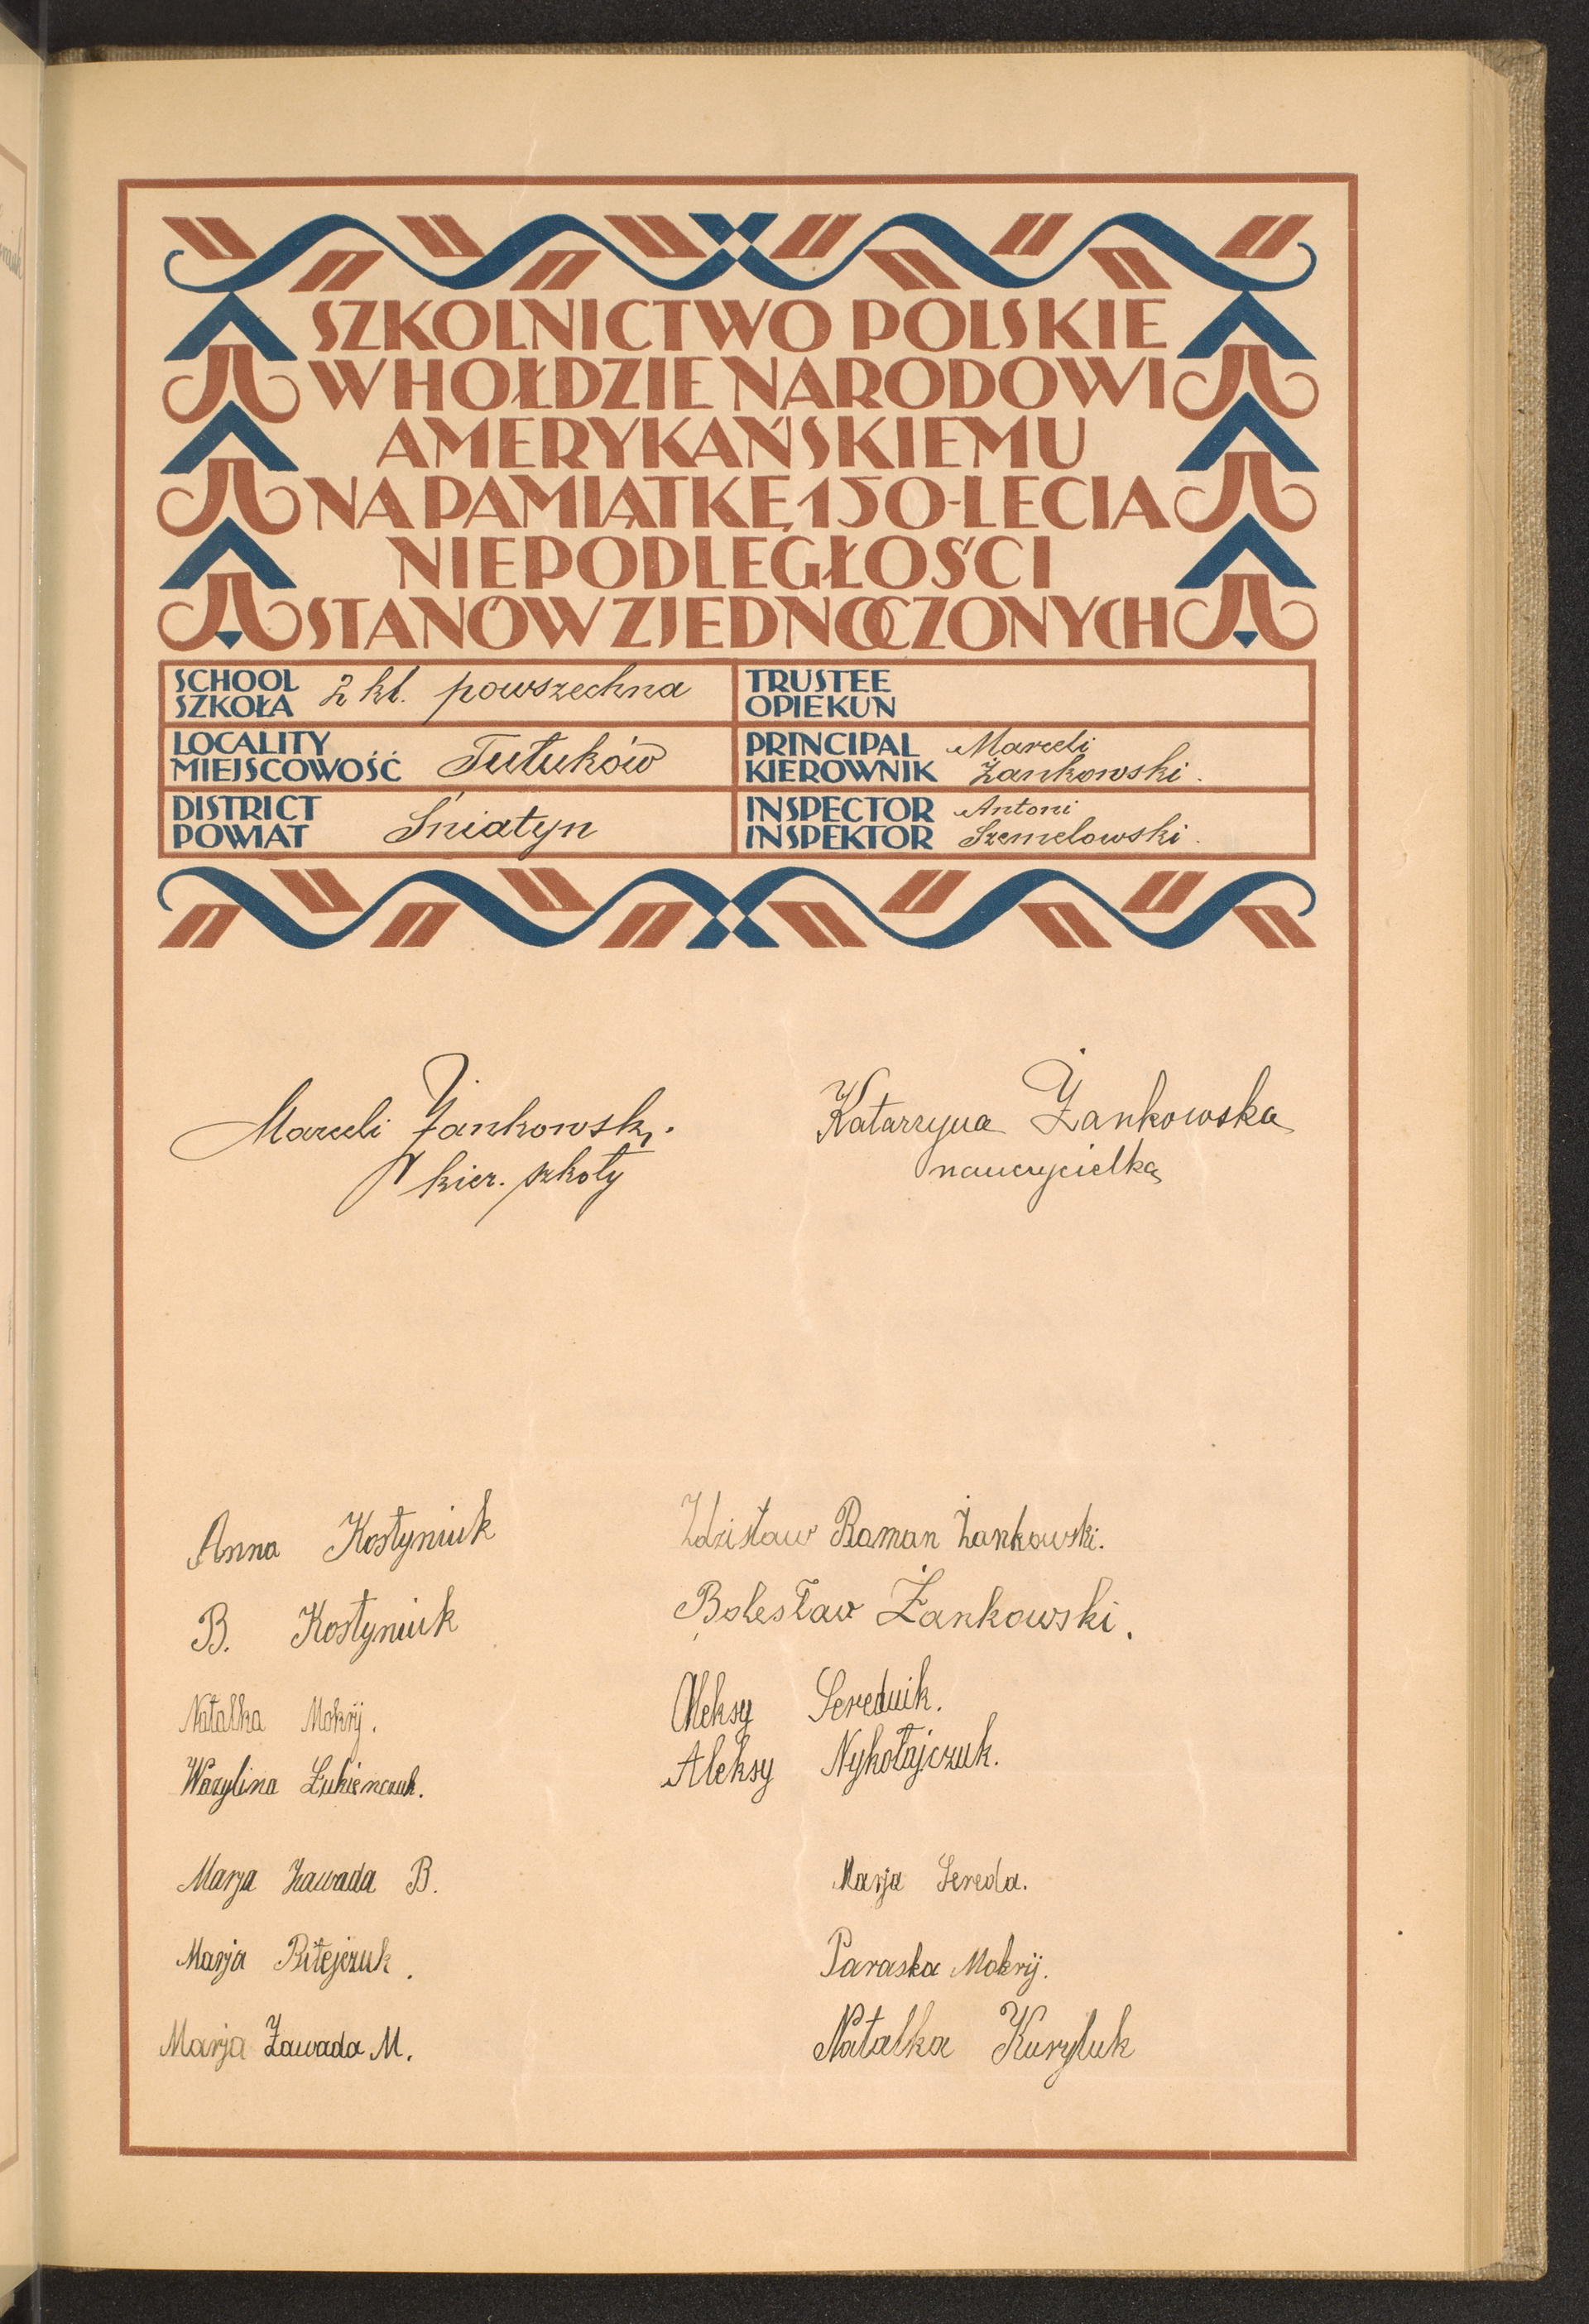 SZKOLNICTWO POLSKIE
W HOŁDZIE NARODOWI
AMERYKAŃSKIEMU
NA PAMIĄTKĘ 150-LECIA
NIEPODLEGŁOŚCI
STANÓW ZJEDNOCZONYCH
SCHOOL
SZKOŁA 2 kl. powszechna
TRUSTEE
OPIEKUN
LOCALITY
MIEJSCOWOŚĆ Tułuków
PRINCIPAL Marceli
KIEROWNIK Żankowski.
DISTRICT
POWIAT Śniatyn
INSPECTOR Antoni
INSPEKTOR Szemelowski.
Marceli Żankowski.
kier. szkoły
Katarzyna Żankowska
nauczycielka
Anna Kostyniuk
B. Kostyniuk
Natalka Mokrij.
Wazylina Łukienczuk.
Marja Zawada B.
Marja Bitejczuk.
Marja Zawada M.
Zdzisław Roman Żankowski.
Bolesław Żankowski.
Aleksy Serednik.
Aleksy Nykołajczuk.
Marja Sereda.
Paraska Mokrij.
Natalka Kuryluk